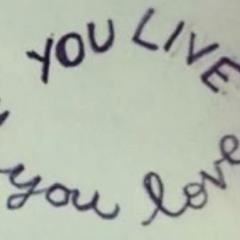 YOU LIVE
you love